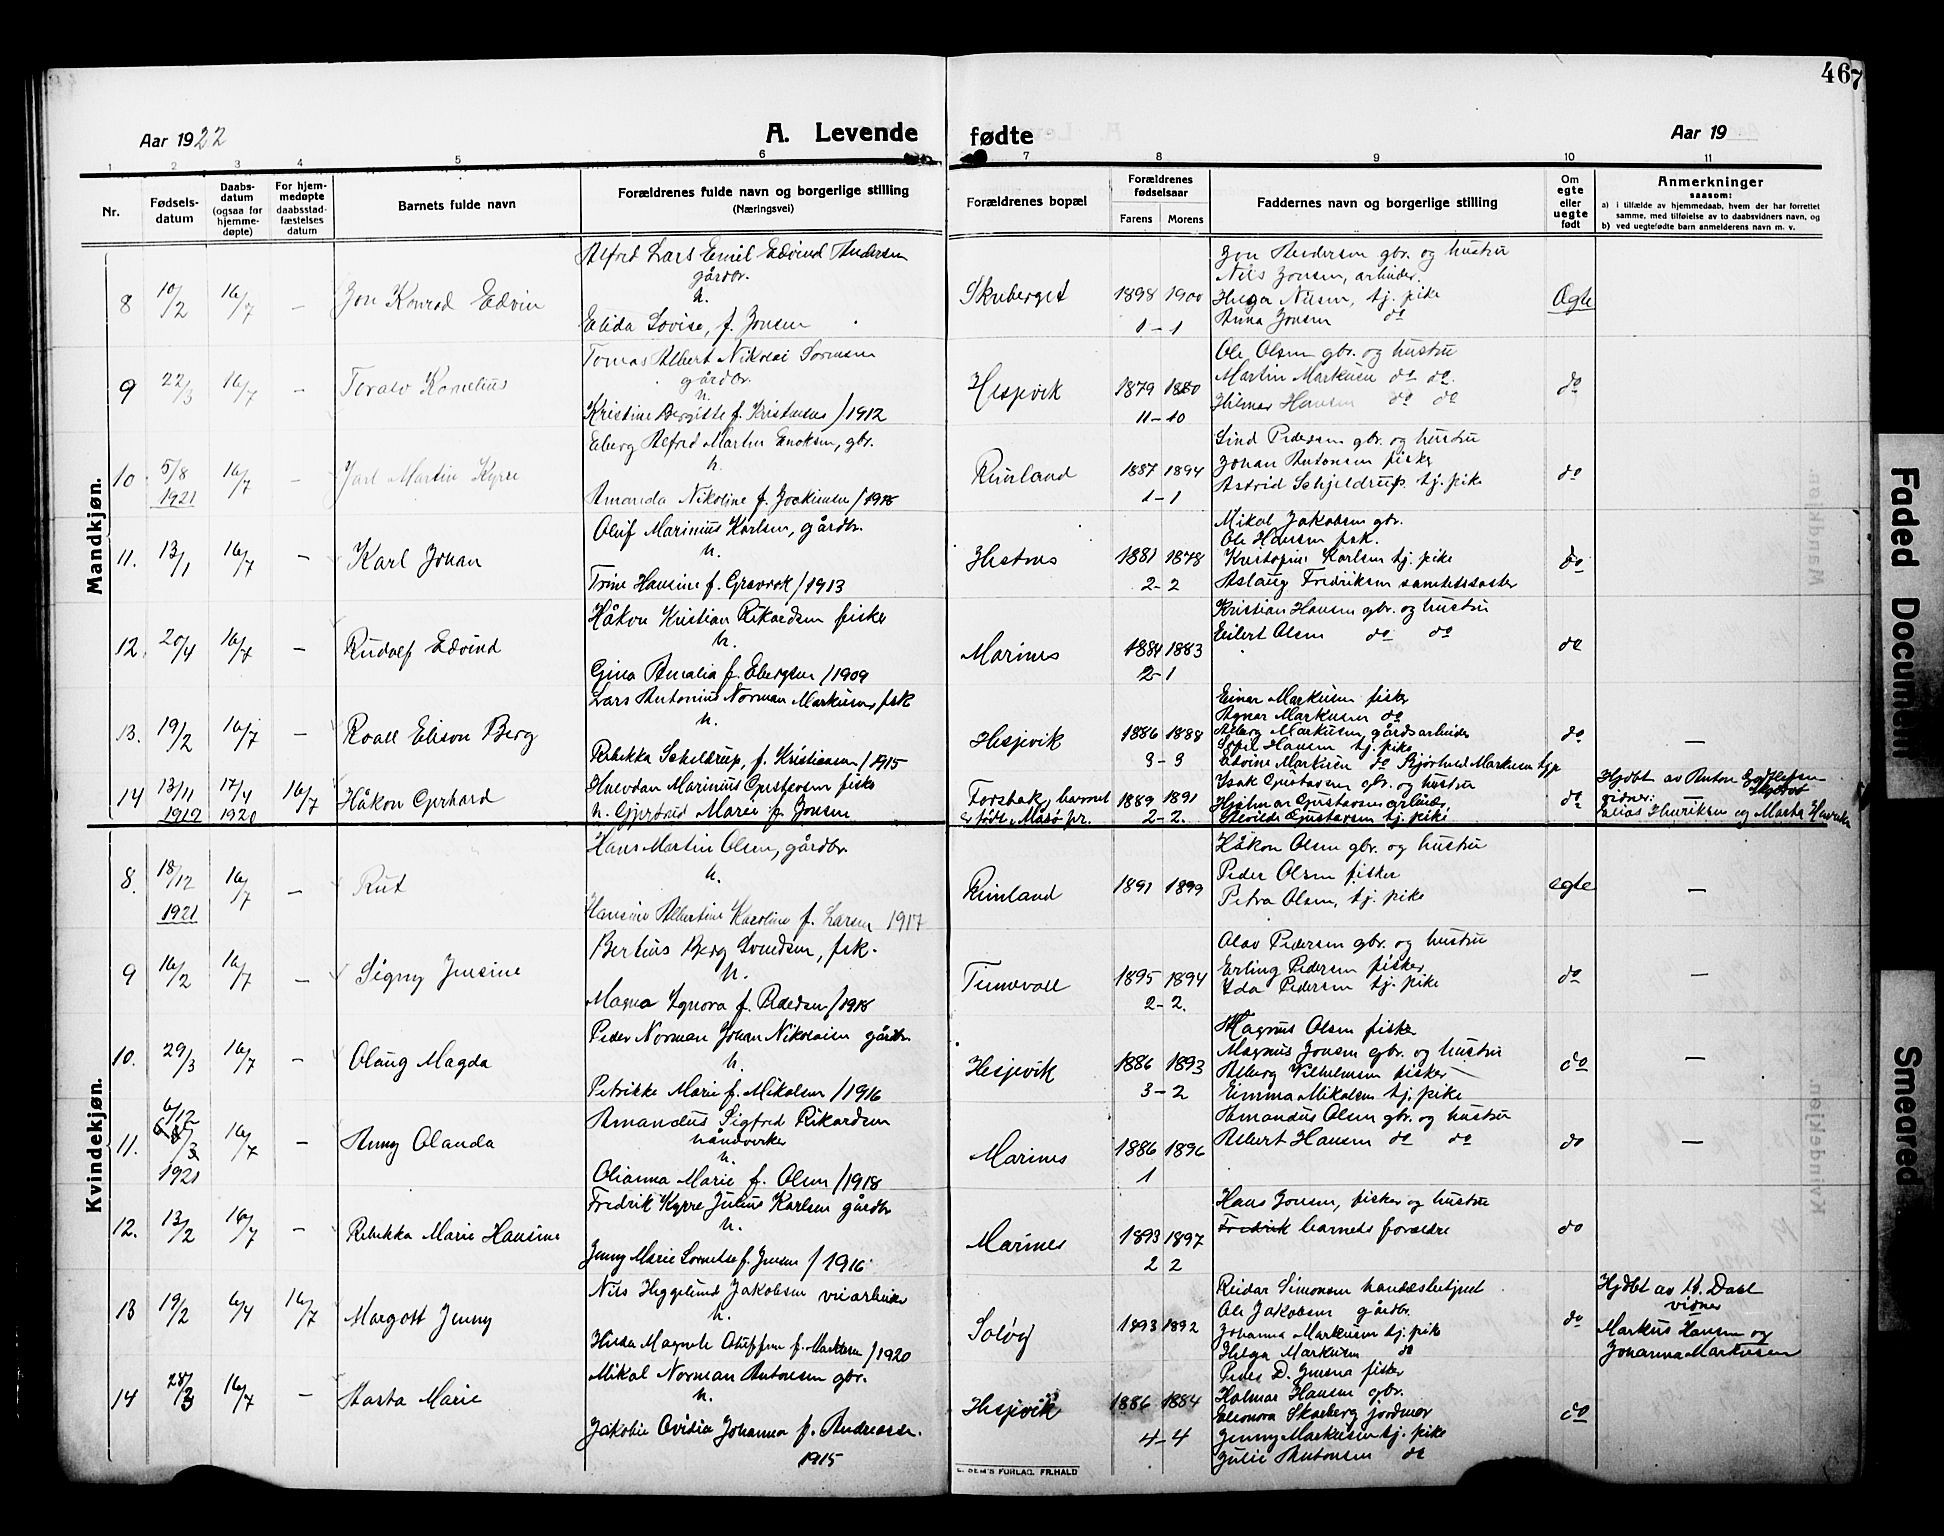 467
Aar 1922
A. Levende fødte
Aar 19
1 2 3 4 5 6 7 8 9 10 11
Nr.
Fødsels-datum
Daabs-datum (ogsaa for hjemme-døpte)
For hjem-medøpte daabsstad-fæstelses datum
Barnets fulde navn
Forældrenes fulde navn og borgerlige stilling
(Næringsvei)
Forældrenes bopæl
Forældrenes fødselsaar
Farens Morens
Faddernes navn og borgerlige stilling
Om egte eller uegte født
Anmerkninger
saasom:
a) i tilfælde av hjemmedaab, hvem der har forrettet
samme, med tilføielse av to daabsvidners navn, og
b) ved uegtefødte barn anmelderens navn m. v.
Mandkjøn.
8 10/2 16/7 – Jon Konrad Edvin
Alfred Lars Emil Edvind Andersen
gårdbr.
h.
Elida Lovise, f. Jonsen
Skuberget 1898 1900
1 – 1
Jon Andersen gbr. og hustru
Nils Jonsen, arbeider.
Helga Nilsen, tj. pike
Anna Jonsen do
Ægte
9 22/3 16/7 – Toralv Kornelius
Tomas Albert Nikolai
gårdbr.
h.
Kristine Bergitte f. /1912
Hesjevik 1879 1880
11 – 10
Ole Olsen gbr. og hustru
Martin Markusen do do.
Hilmar Hansen do do
do
10 5/8 1921 16/7 – Jarl Martin Kyrre
Eberg Alfred Martin Enoksen, gbr.
h.
Amanda Nikoline f. Joakimsen /1918
Reinland 1887 1894
1 – 1
Pedersen gbr. og hustru
Johan Antonsen fisker
Astrid Schjeldrup tj. pike
do
11. 13/1 16/7 – Karl Johan
Oluf Marinius Karlsen, gårdbr.
h.
Trine Hansine f. Gravrok /1913
1881 1878
2 – 2
Mikal Jakobsen gbr.
Ole Hansen fsk.
Karlsen tj. pike
Aslaug Fredriksen
do
12. 20/4 16/7 – Rudolf Edvind
Håkon Kristian Rikardsen fisker
h.
Gina Amalia f. Ebergsen /1909
Marines 1884 1883
2 – 1
Kristian Hansen gbr. og hustru
Eilert Olsen do do
do
13. 19/2 16/7 – Roald Elison Berg
Lars Antonius Norman Markusen, fsk
h.
Rebekka Scheldrup, f. Kristiansen /1915
Hesjevik 1886 1888
3 – 3
Einar Markusen fisker
Agnar Markusen do
Alberg Markusen gårdsarbeider
Hansen tj. pike
Markusen do Markusen tj.p
do –
14 13/11 1919 17/4 1920 16/7 Håkon Gerhard
Halvdan Marinius Gustavsen fisker
h. Gjertrud Marie f. Jonsen
barnet 1889 1891
er født i Måsø pr. 2 – 2.
Isak Gustavsen gbr. og hustru
Hjalmar Gustavsen arbeider
Gustavsen tj. pike
do
Hjdbt av Anton
vidner:
Henriksen og Marta
Kvindekjøn.
8. 18/12 1921 16/7 – Rut
Hans Martin Olsen, gårdbr.
h.
Hansine Albertine Karoline f. Larsen 1917
Reinland 1891 1899
Håkon Olsen gbr. og hustru
Peder Olsen fisker
Petra Olsen, tj. pike
egte –
9 16/2 16/7 – Signy Jensine
Bertius Berg Svendsen, fsk.
h.
Magna f. Pedersen /1918
1895 1894
2 – 2.
Olav Pedersen gbr. og hustru
Erling Pedersen fisker
Ida Pedersen tj. pike
do –
10. 29/3 16/7 – Olaug Magda
Peder Norman Johan Nikolaisen gårdbr.
h.
Petrikke Marie f. Mikalsen /1916
Hesjevik 1886 1893
3 – 2
Magnus Olsen fisker
Magnus Jensen gbr. og hustru
Alberg Vilhelmsen fisker
Emma Mikalsen tj. pike
do –
11. 6/12 1921 16/7 – Anny Olanda
Amandus Sigfred Rikardsen
håndverker
h.
Olianna Marie f. Olsen /1918
Marines 1886 1896
1
Amandus Olsen gbr. og hustru
Albert Hansen do do
do –
12. 13/2 16/7 – Rebekka Marie Hansine
Fredrik Kyrre Julius Karlsen gårdbr
h.
Jenny Marie f. Jensen /1916
Marines 1893 1897
2 2
Hans Jonsen, fisker og hustru
Fredrik barnets forældre
do
13 19/2 6/4 16/7 Margott Jenny
Nils Heggelund Jakobsen veiarbeider
h.
Hilda Magnele f. /1920
1893 1892
Reidar Simonsen handelsbetjent
Ole Jakobsen gårdbr.
Johanna Markusen tj. pike
Helga Markusen do
do
Hjdbt av
vidner
Markus Hansen og
Johanna Markusen
14 28/3 16/7 – Marta Marie
Mikal Norman Antonsen gbr.
h.
Jakobie Ovidia Johanna f. Andreassen.
1915
Hesjevik 1886 1884
4 – 4
Peder D. Jensen fisker
Halmar Hansen gbr.
Eleonora Skarberg jordmor
Jenny Markusen tj. pike
Julie Antonsen do
do
SEM'S FORLAG, FR.HALD
Faded Document
Smeared